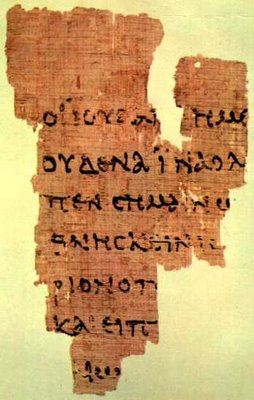 ΟΙ ΙΟΥΔΑΙ ΗΜΙ
ΟΥΔΕΝΑ ΙΝΑ ΟΛ
ΠΕΝ ΣΗΜΑΙΝΩ
ΘΝΗΣΚΕΙΝ ΙΣ
ΡΙΟΝ ΟΠ
ΚΑΙ ΕΙΠ